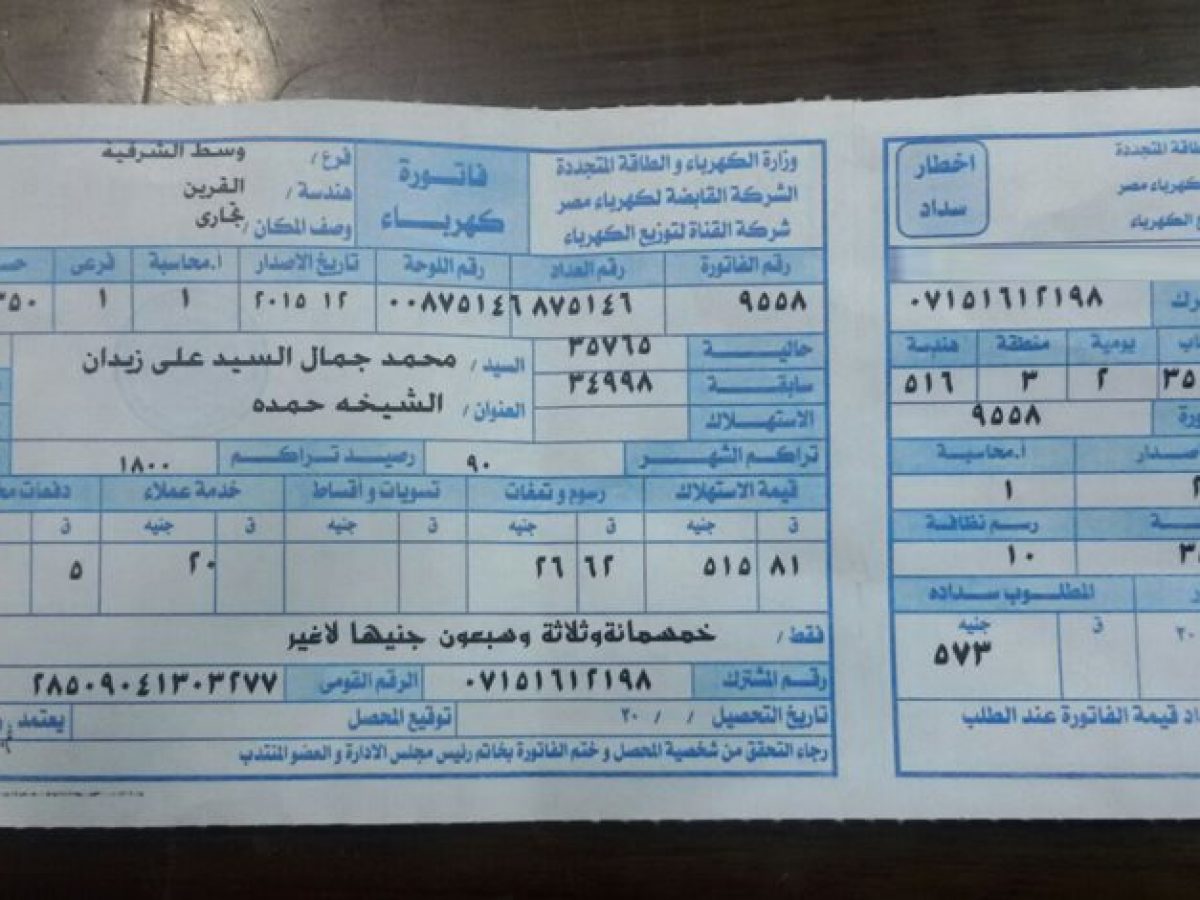 وزارة الكهرباء و الطاقة المتجددة
الشركة القابضة لكهرباء مصر
شركة القناة لتوزيع الكهرباء
فاتورة
كهرباء
فرع / وسط الشرقية
هندسة / القرين
وصف المكان / تجارى
رقم الفاتورة رقم العداد رقم اللوحة تاريخ الاصدار أ.محاسبة فرعى
٩٥٥٨ ٨٧٥١٤٦ ٠٠٨٧٥١٤٦ ٢٠١٥ ١٢ ١ ١
حالية ٣٥٧٦٥
سابقة ٣٤٩٩٨
الاستهلاك
السيد / محمد جمال السيد على زيدان
العنوان / الشيخه حمده
تراكم الشهر ٩٠ رصيد تراكم ١٨٠٠
قيمة الاستهلاك رسوم و تمغات تسويات و أقساط خدمة عملاء دفعات
ق جنيه ق جنيه ق جنيه ق جنيه ق
٨١ ٥١٥ ٦٢ ٢٦ ٢٠ ٥
فقط / خمسمائة وثلاثة وسبعون جنيها لاغير
رقم المشترك ٠٧١٥١٦١٢١٩٨ الرقم القومى ٢٨٥٠٩٠٤١٣٠٣٢٧٧
تاريخ التحصيل / / ٢٠ توقيع المحصل يعتمد
رجاء التحقق من شخصية المحصل و ختم الفاتورة بخاتم رئيس مجلس الادارة و العضو المنتدب
المتجددة
كهرباء مصر
الكهرباء
اخطار
سداد
٠٧١٥١٦١٢١٩٨
يومية منطقة هندسة
٣٥ ٢ ٣ ٥١٦
٩٥٥٨
أ.محاسبة
١
رسم نظافة
١٠
المطلوب سداده
ق جنيه
٢٠ ٥٧٣
قيمة الفاتورة عند الطلب